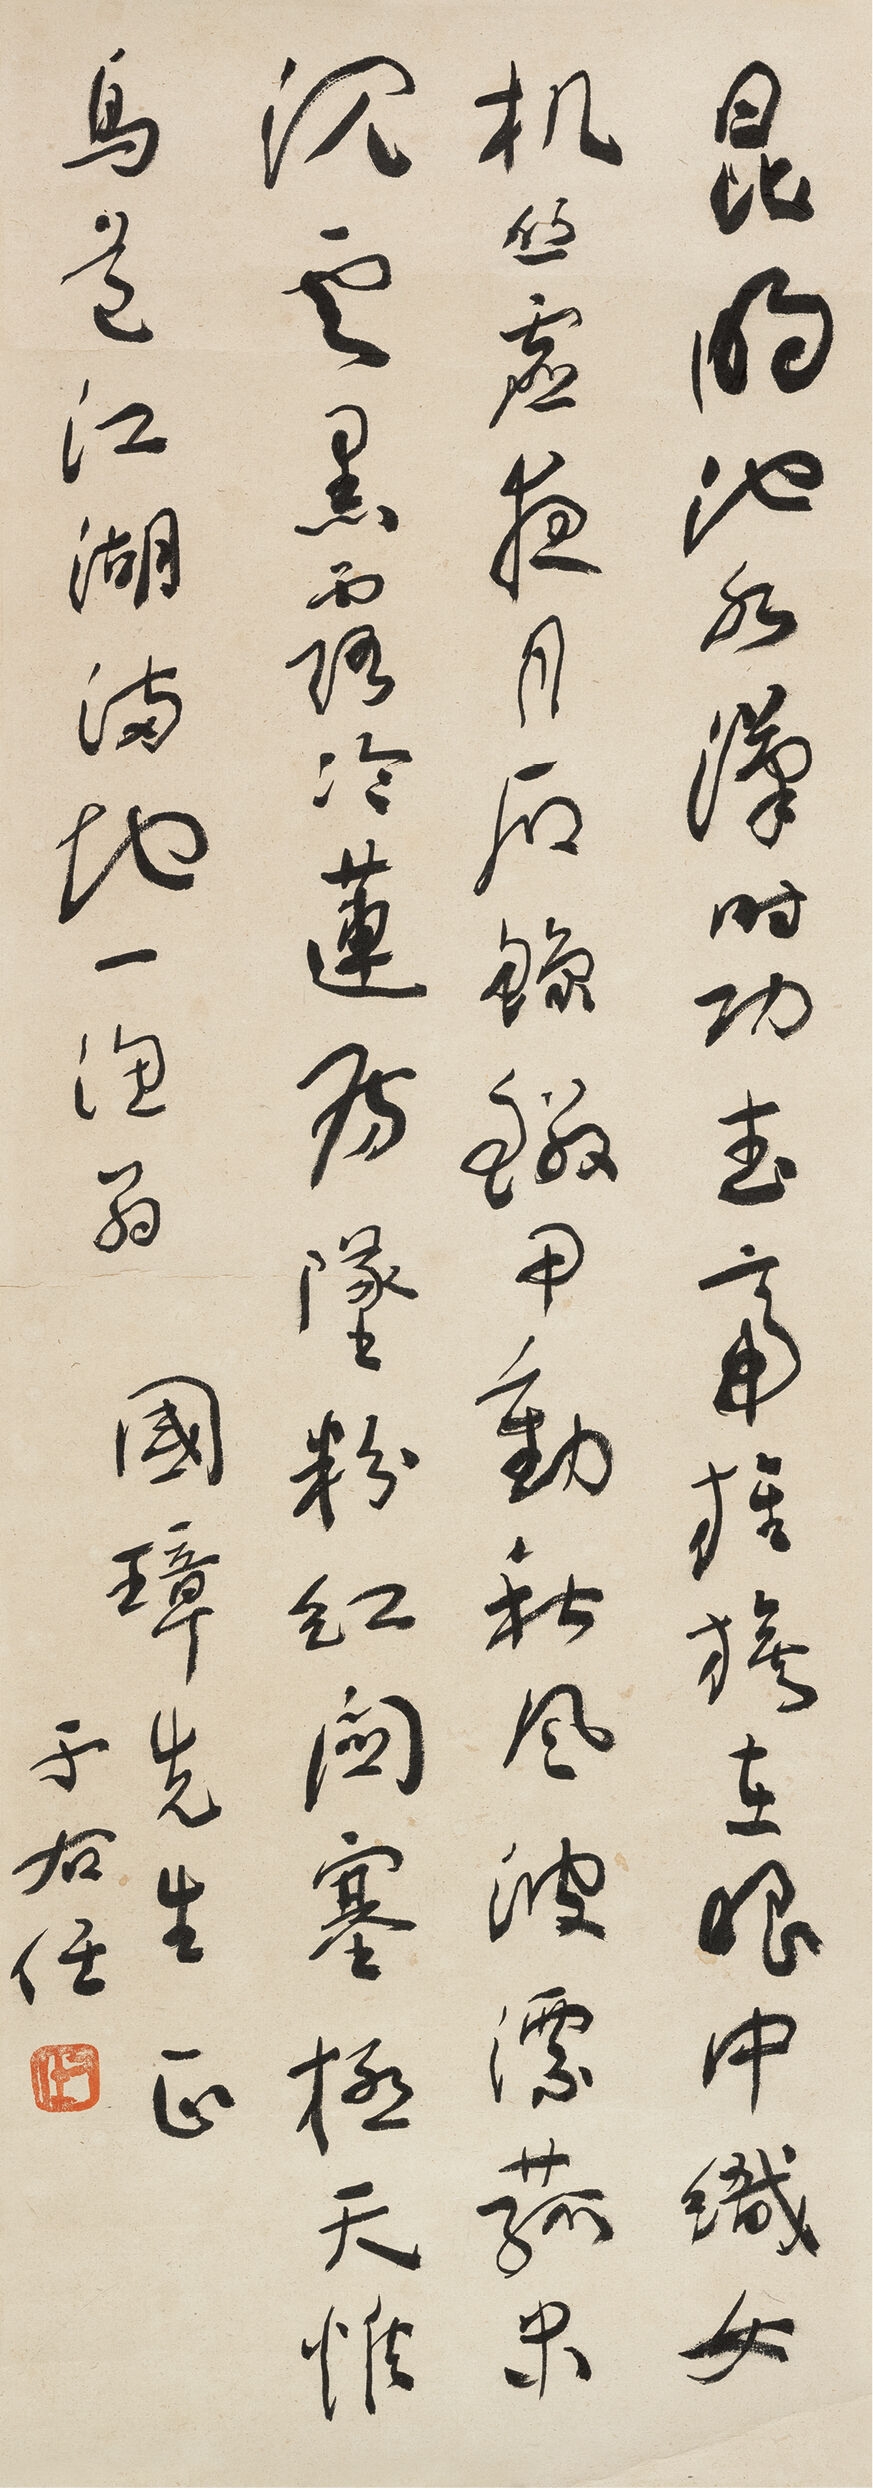 昆明池水漢時功武帝旌旗在眼中織女
机絲虛夜月石鯨鱗甲動秋風波漂菰米
沉雲黑露冷蓮房墜粉紅關塞極天惟
鳥道江湖滿地一漁翁
國璋先生正
于右任